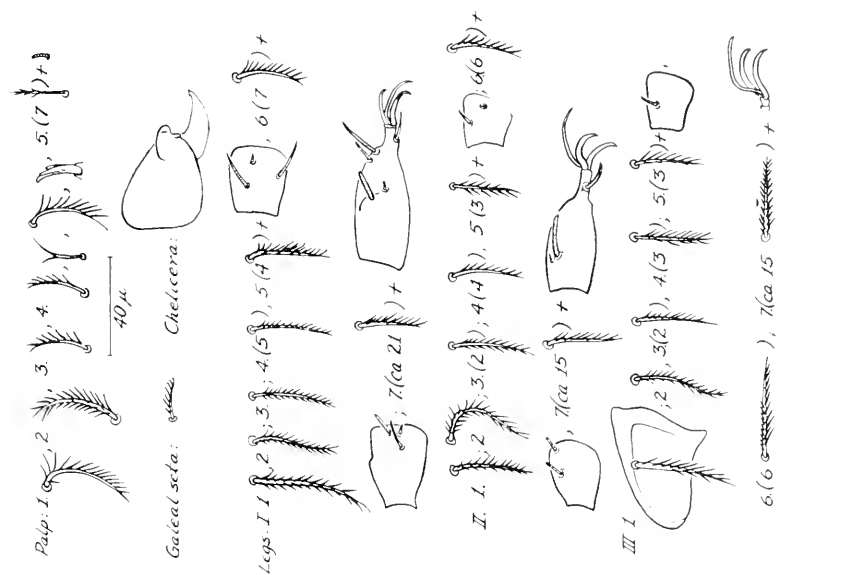 Palp: 1. , 2 , 3. , 4. , , 5.(7 )+
40 µ
Galeal seta: Chelicera:
Legs: I 1 , 2 ; 3. ; 4.(5 ), 5(4 )+ , 6(7 )+
; 7.(ca 21 )+
II. 1. ; 2 , 3.(2 ); 4(4 ), 5(3 )+ ; 6(6 )+
, 7(ca 15 )+
III 1 ; 2 , 3(2 ), 4.(3 ); 5(3 )+ ,
6.(6 ); 7.(ca 15 )+